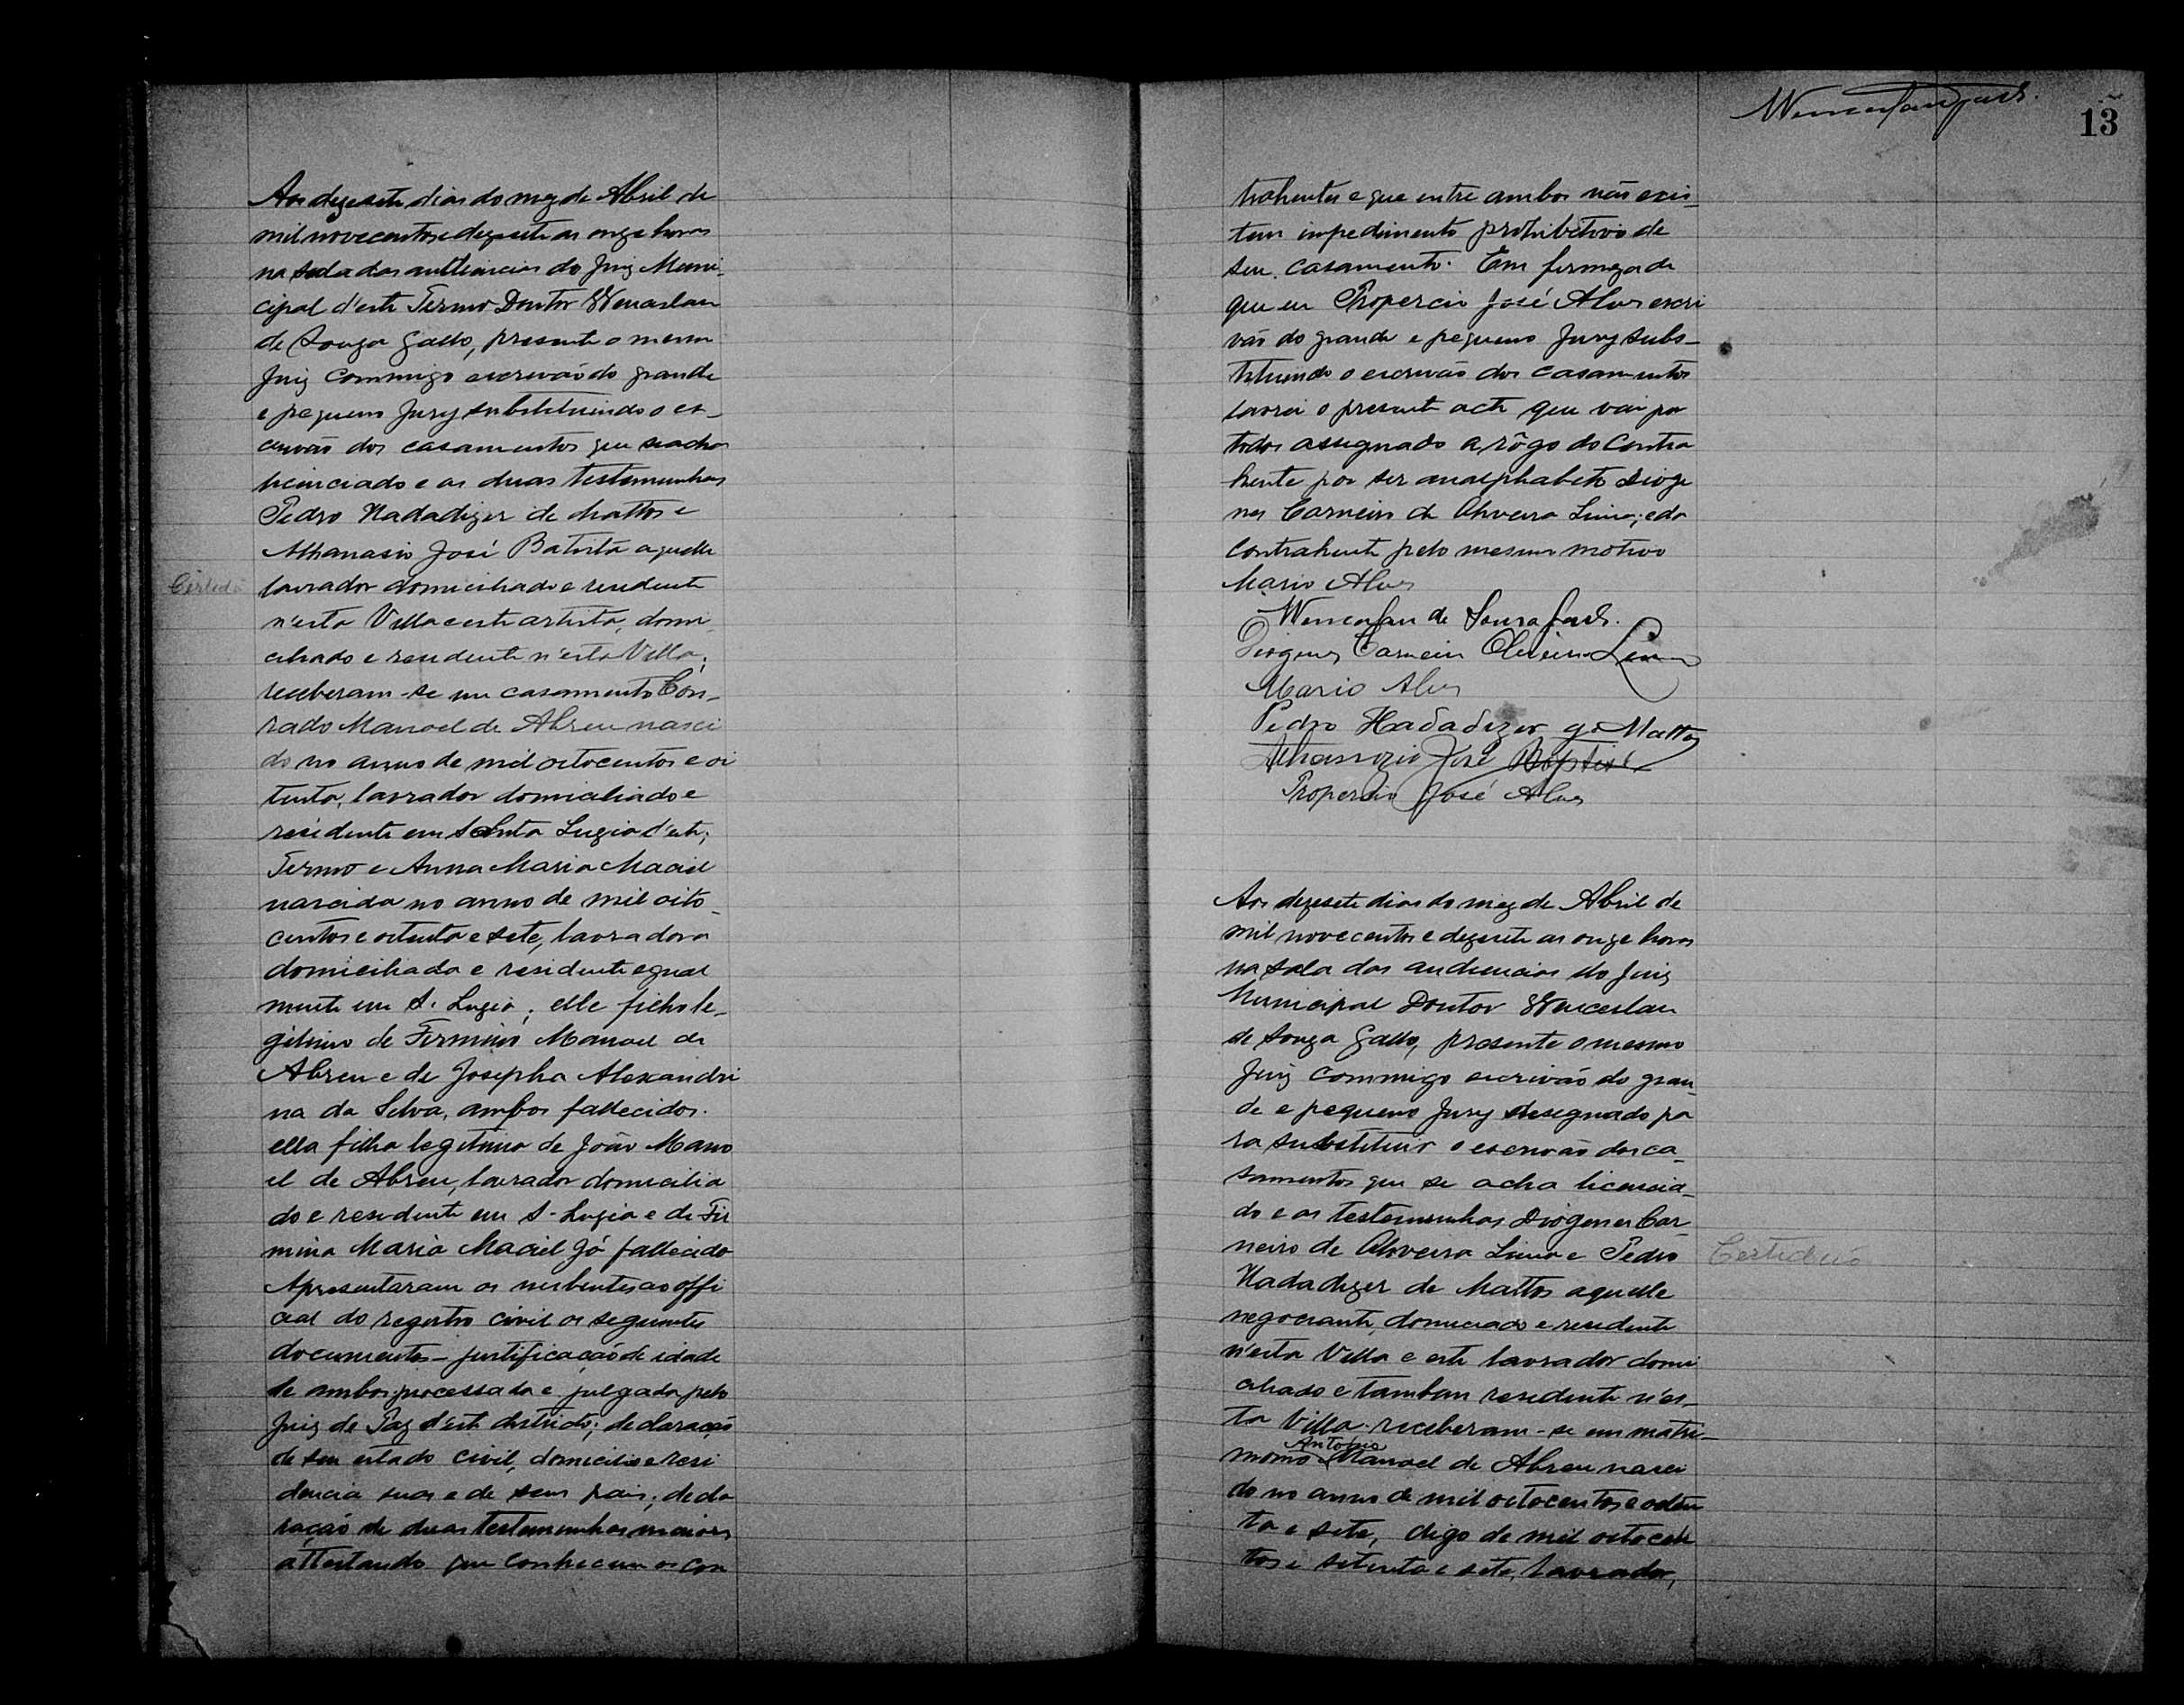 Aos dezesete dias do mez de Abril de
mil novecentos e dezesete as onze horas
na sala das audiencias do Juiz Muni-
cipal d'este Termo Doutor Wenceslau
de Souza Gallo, presente o mesmo
Juiz commigo escrivão do grande
e pequeno Jury substituindo o es-
crivão dos casamentos que se acha
licenciado e as duas testemunhas
Pedro Hadadezer de Mattos e
Athanasio José Batista aquelle
Certidão
lavrador domiciliado e residente
n'esta Villa e este artista, domi-
ciliado e residente n'esta Villa;
receberam-se em casamento Con-
rado Manoel de Abreu nasci
do no anno de mil oitocentos e oi
tenta, lavrador domiciliado e
residente em Santa Luzia d'este,
Termo e Anna Maria Maciel
nascida no anno de mil oito-
centos e oitenta e sete, lavradora
domiciliada e residente egual
mente em S. Luzia; elle filho le-
gitimo de Firmino Manoel de
Abreu e de Josepha Alexandri
na da Silva, ambos fallecidos.
ella filha legitima de João Mano
el de Abreu, lavrador domicilia
do e residente em S. Luzia e de Fir
mina Maria Maciel já fallecida
Apresentaram os nubentes ao offi
cial do registro civil os seguintes
documentos - justificação de idade
de ambos processada e julgada pelo
Juiz de Paz d'este districto; declaração
de seu estado civil, domicilio e resi
dencia suas e de seus pais; decla
ração de duas testemunhas maiores
attestando que conhecem os con
Wenceslau
13
trahentes e que entre ambos não exis-
tem impedimento prohibitivo de
seu casamento. Em firmeza do
que eu Propercio José Alves escri
vão do grande e pequeno Jury subs-
tituindo o escrivão dos casamentos
lavrei o presente acto que vai por
todos assegnado a rôgo do contra
hente por ser analphabeto Dioge
nes Carneiro de Oliveira Lima; e da
contrahente pelo mesmo motivo
Mario Alves
Wenceslau de Souza Gallo.
Diogenes Carneiro Oliveira Lima
Mario Alves
Pedro Hadadezer de Mattos
Athanazio José Baptista
Propercio José Alves
Aos dezesete dias do mez de Abril de
mil novecentos e dezesete as onze horas
na sala das audiencias do Juiz
Municipal Doutor Wenceslau
de Souza Gallo, presente o mesmo
Juiz commigo escrivão do gran-
de e pequeno Jury designado pa
ra substituir o escrivão dos ca-
samentos que se acha licencia-
do e as testemunhas Diogenes Car
neiro de Oliveira Lima e Pedro
Certidão
Hadadezer de Mattos aquelle
negociante, domiciado e residente
n'esta Villa e este lavrador domi
ciliado e tambem residente n'es-
ta Villa. receberam-se em matri-
Antonio
monio Manoel de Abreu nasci
do no anno de mil oitocentos e oiten
ta e sete, digo de mil oitocen
tos e setenta e sete, lavrador,